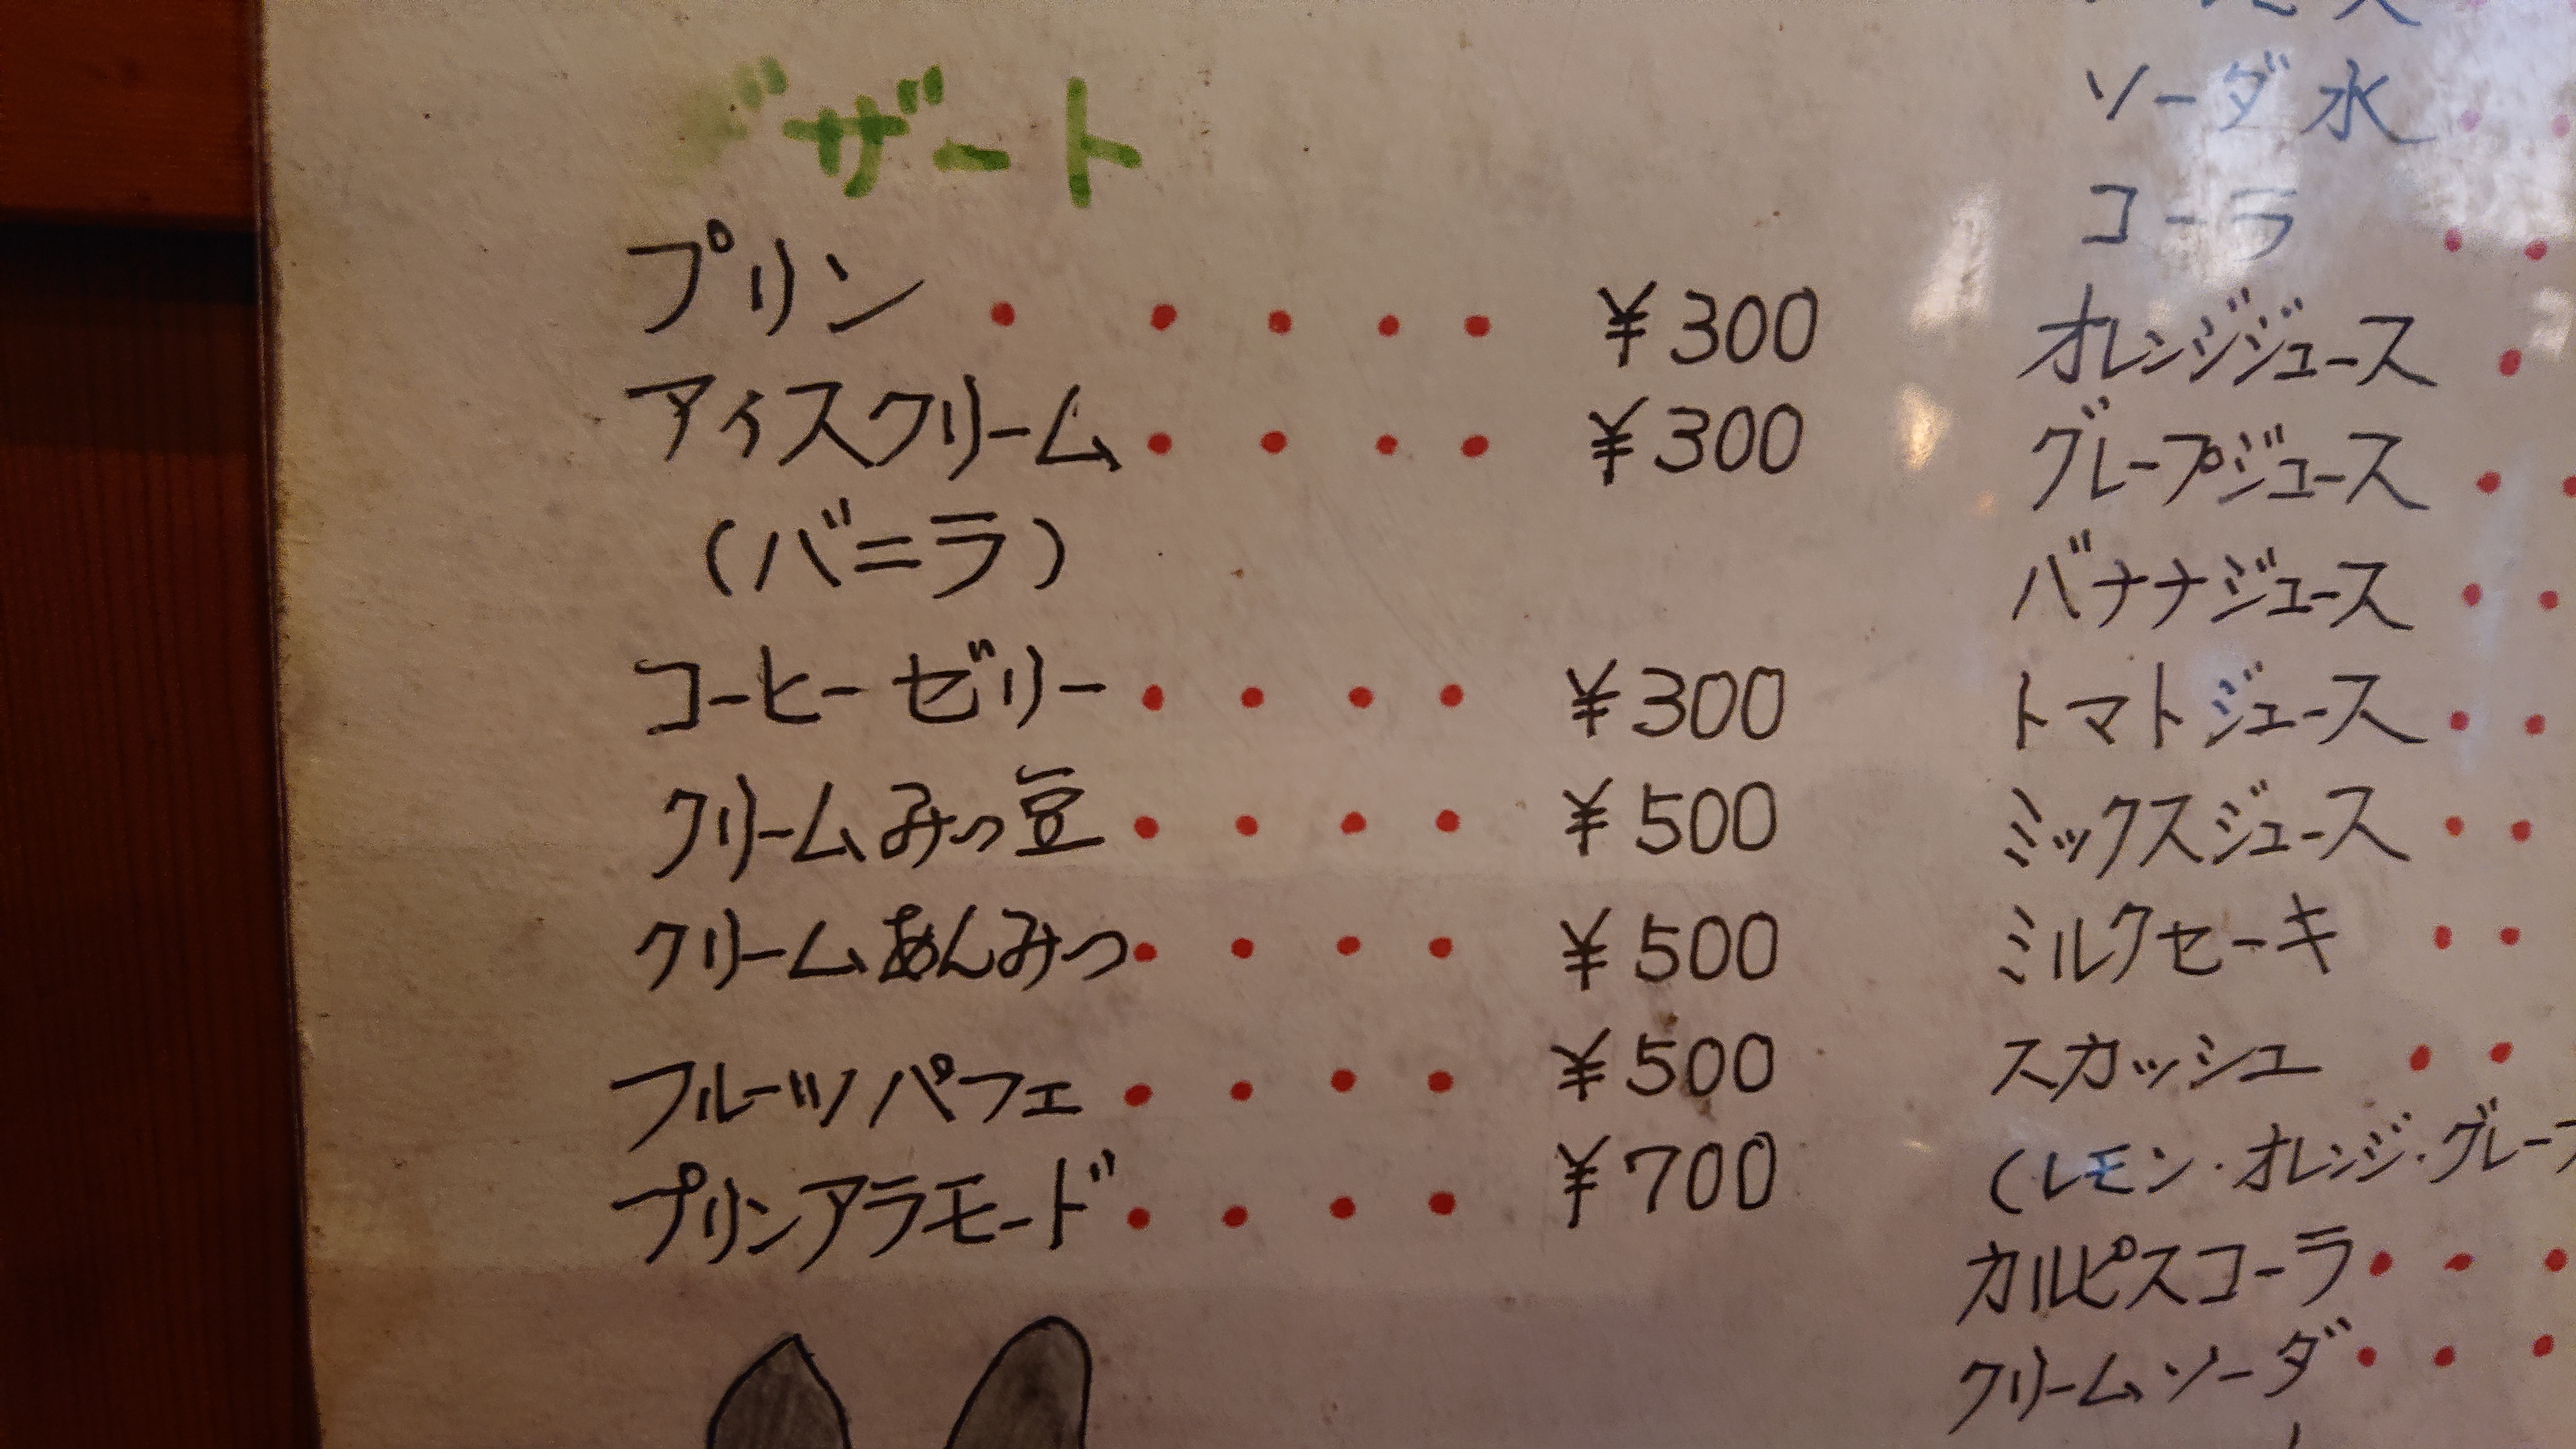 デザート
プリン ・・・・・ ¥300
アイスクリーム ・・・・ ¥300
(バニラ)
コーヒーゼリー ・・・・ ¥300
クリームみつ豆 ・・・・ ¥500
クリームあんみつ ・・・・ ¥500
フルーツパフェ ・・・・ ¥500
プリンアラモード ・・・・ ¥700
ソーダ水 ・・
コーラ ・・
オレンジジュース ・
グレープジュース ・・
バナナジュース ・・
トマトジュース ・・
ミックスジュース ・・
ミルクセーキ ・・
スカッシュ ・・
(レモン・オレンジ・グレープ
カルピスコーラ ・・・
クリームソーダ ・・・